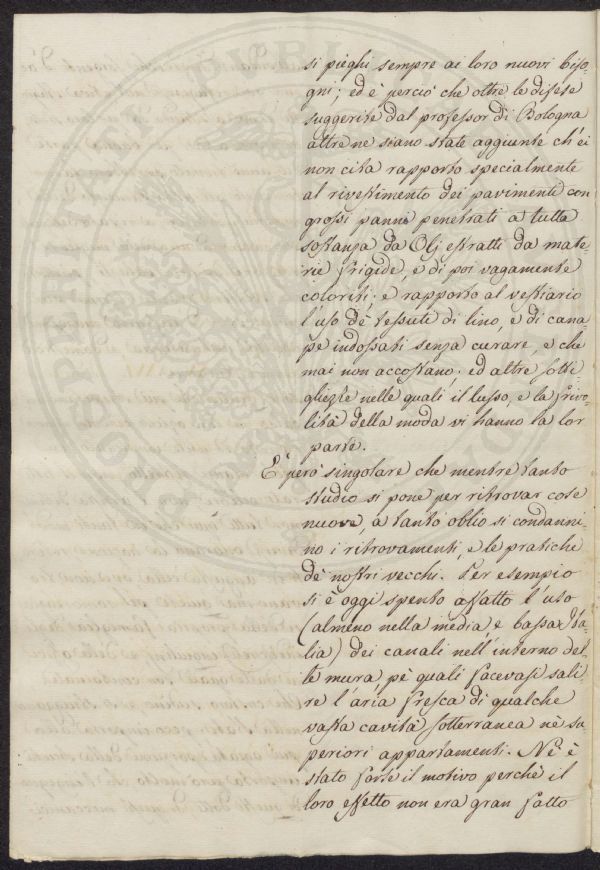 si pieghi sempre ai loro nuovi biso-
gni; ed è perciò che oltre le difese
suggerite dal professor di Bologna
altre ne siano state aggiunte ch'ei
non cita rapporto specialmente
al rivestimento dei pavimenti con
grossi panni penetrati a tutta
sostanza da Olj estratti da mate
rie frigide, e di poi vagamente
coloriti; e rapporto al vestiario
l'uso dè tessuti di lino, e di cana
pè indossati senza curare, e che
mai non accostano; ed altre sotti
gliezze nelle quali il lusso, e la frivo-
lità della moda vi hanno la lor
parte.
È però singolare che mentre tanto
studio si pone per ritrovar cose
nuove, a tanto oblio si condanni-
no i ritrovamenti, e le pratiche
dè nostri vecchi. Per esempio
si è oggi spento affatto l'uso
(almeno nella media, e bassa Ita-
lia) dei canali nell'interno del-
le mura, pè quali facevasi sali-
re l'aria fresca di qualche
vasta cavità sotterranea nè su-
periori appartamenti. Nè è
stato forse il motivo perchè il
loro effetto non era gran fatto